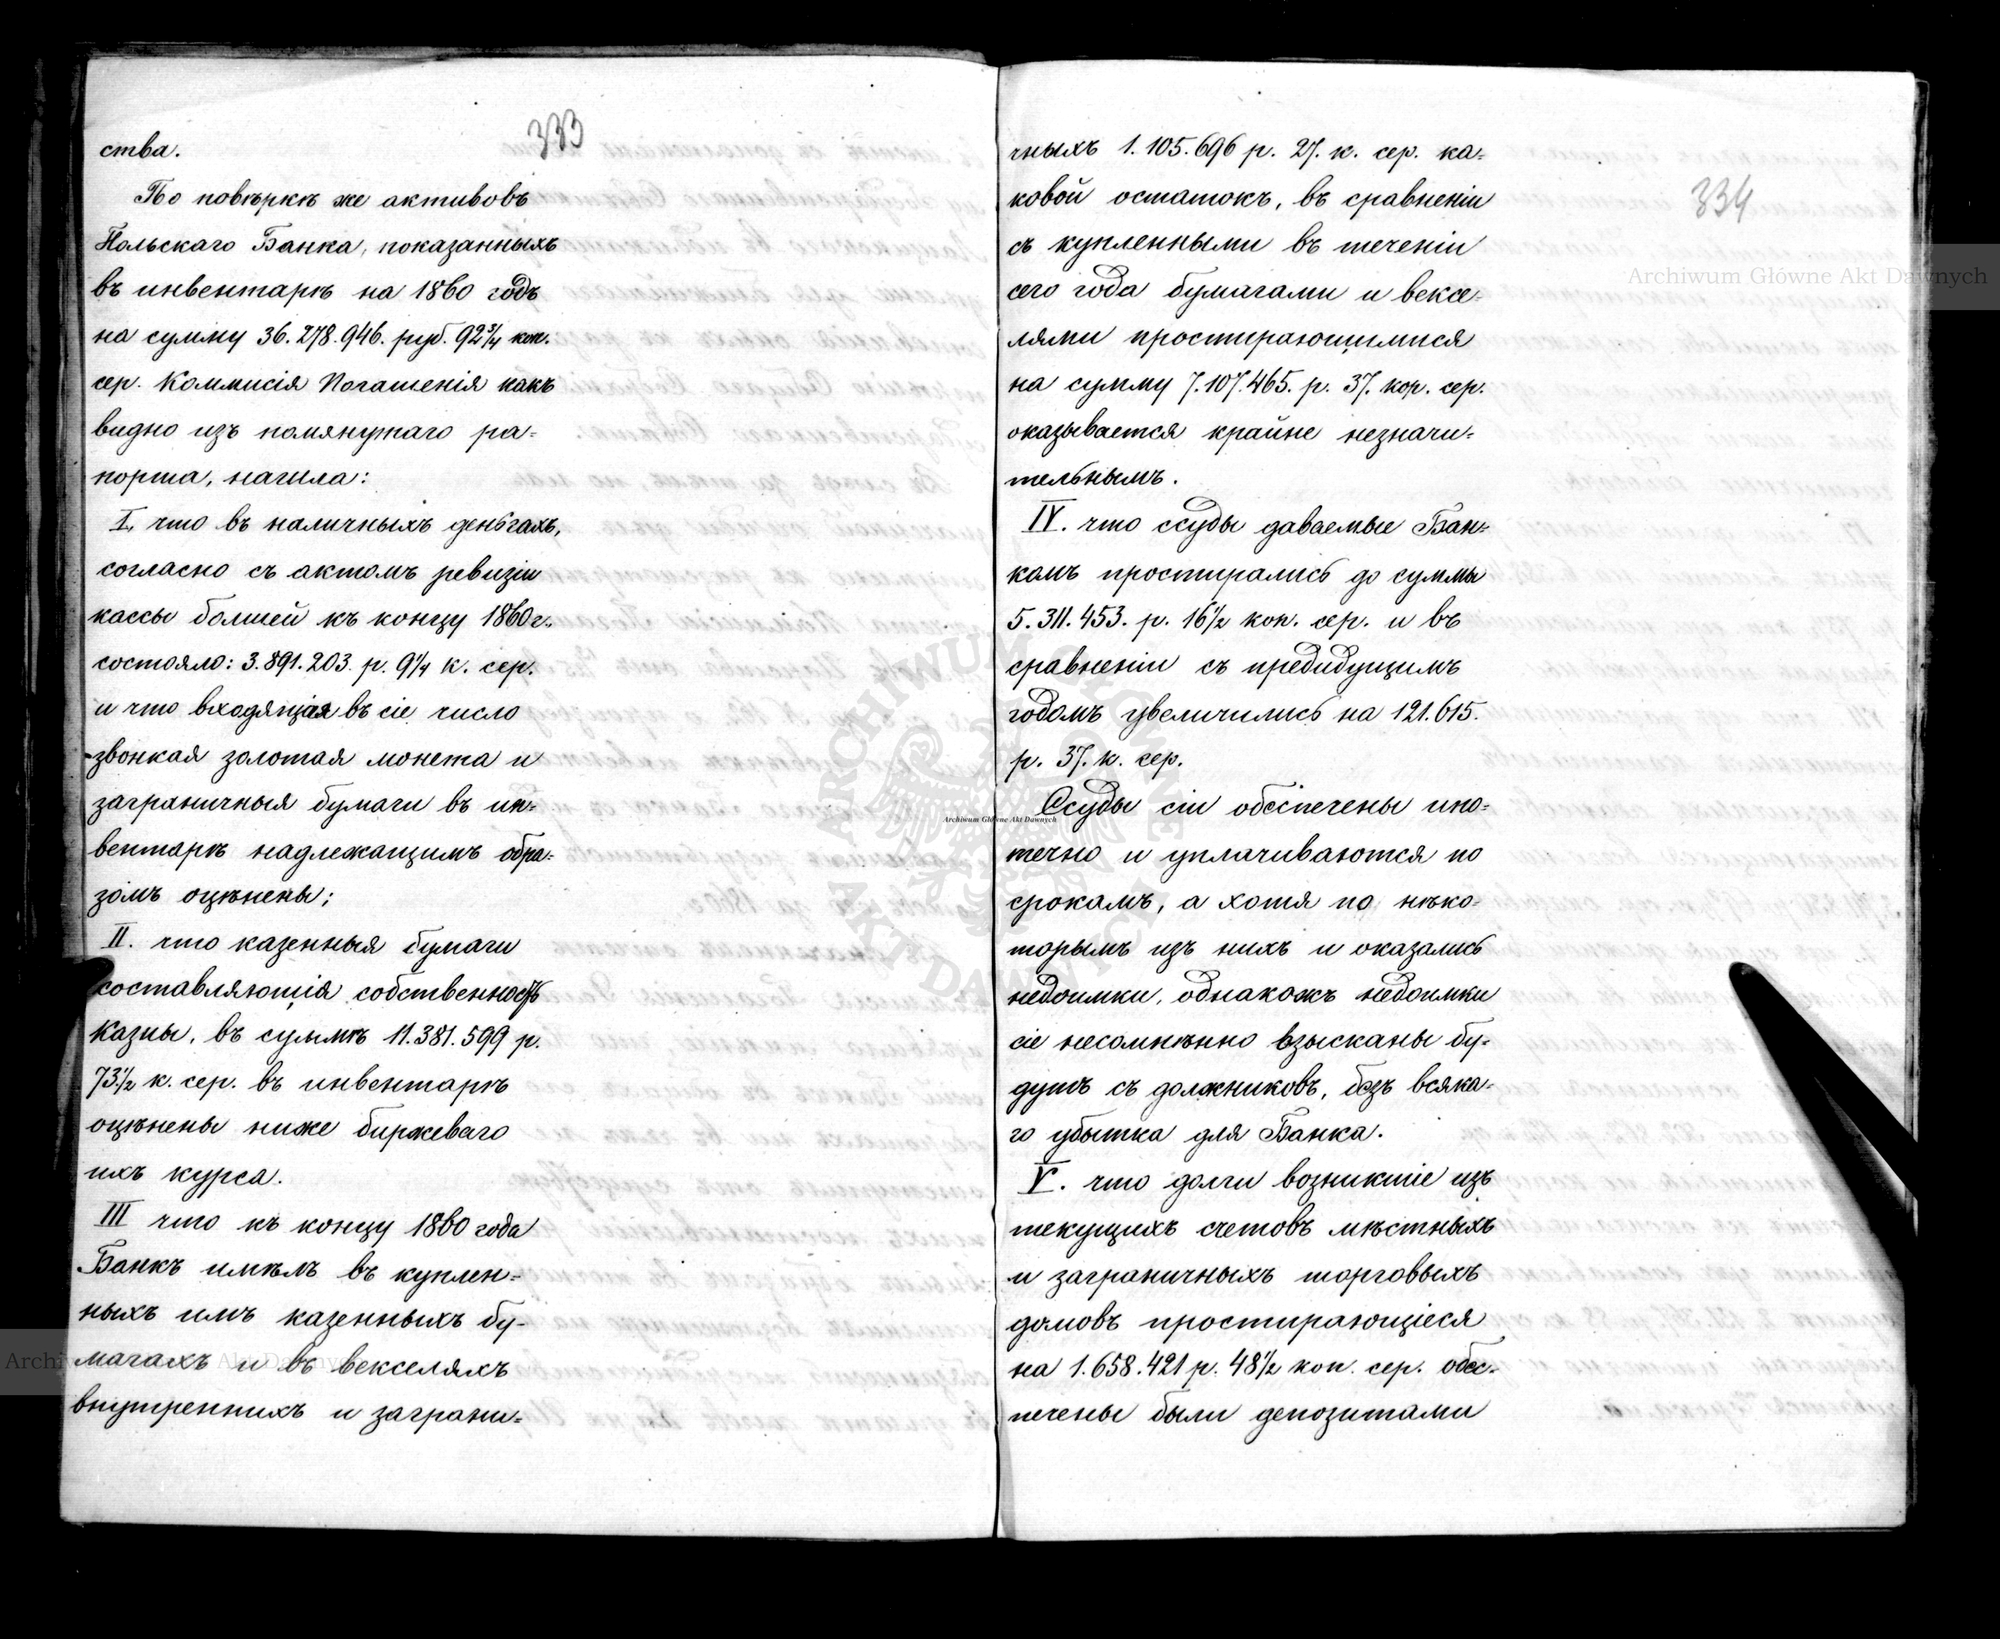 333
ства.
По повѣркѣ же активовъ
Польскаго Банка, показанныхъ
въ инвентарѣ на 1860 годъ
на сумму 36.278.946. руб. 92¾ коп.
сер. Коммисія Погашенія какъ
видно изъ помянутаго ра-
порта, нашла:
I, что въ наличныхъ деньгахъ,
согласно съ актомъ ревизіи
кассы большей къ концу 1860 г.
состояло: 3.891.203. р. 9¼ к. сер.
и что входящія въ сіе число
звонкая золотая монета и
заграничныя бумаги въ ин-
вентарѣ надлежащимъ обра-
зомъ оцѣнены;
II. что казенныя бумаги
составляющія собственность
Казны, въ суммѣ 11.381.599 р.
73½ к. сер. въ инвентарѣ
оцѣнены ниже биржеваго
ихъ курса.
III что къ концу 1860 года
Банкъ имѣлъ въ куплен-
ныхъ имъ казенныхъ бу-
магахъ и въ векселяхъ
внутреннихъ и заграни-
334
чныхъ 1.105.696 р. 27. к. сер. ка-
ковой остатокъ, въ сравненіи
съ купленными въ теченіи
сего года бумагами и вексе-
лями простирающимися
на сумму 7.107.465. р. 37. коп. сер.
оказывается крайне незначи-
тельнымъ.
IV. что ссуды даваемые Бан-
комъ простирались до суммы
5.311.453. р. 16½ коп. сер. и въ
сравненіи съ предидущимъ
годомъ увеличились на 121.615.
р. 37. к. сер.
Ссуды сіи обеспечены ипо-
течно и уплачиваются по
срокамъ, а хотя по нѣко-
торымъ изъ нихъ и оказались
недоимки, однакожъ недоимки
сіе несомнѣнно взысканы бу-
дутъ съ должниковъ, безъ всяка-
го убытка для Банка.
V. что долги возникшіе изъ
текущихъ счетовъ мѣстныхъ
и заграничныхъ торговыхъ
домовъ простирающіеся
на 1.658.421 р. 48½ коп. сер. обес-
печены были депозитами
Archiwum Główne Akt Dawnych
Archiwum Główne Akt Dawnych
Archiwum Główne Akt Dawnych
ARCHIWUM GŁÓWNE
AKT DAWNYCH